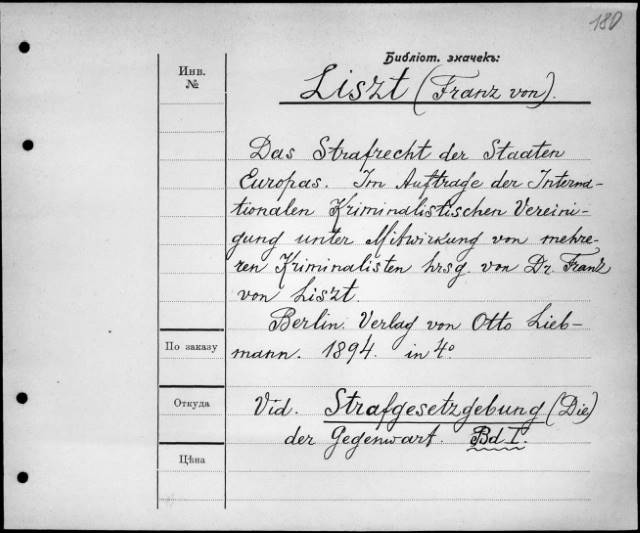 180
Библіот. значекъ:
Инв.
№
Liszt (Franz von).
Das Strafrecht der Staaten
Europas. Im Auftrage der Interna-
tionalen Kriminalistischen Vereini-
gung unter Mitwirkung von mehre-
ren Kriminalisten hrsg. von Dr. Franz
von Liszt.
Berlin. Verlag von Otto Lieb-
По заказу
mann. 1894. in 4°.
Откуда
Vid. Strafgesetzgebung (Die)
der Gegenwart. Bd I.
Цѣна